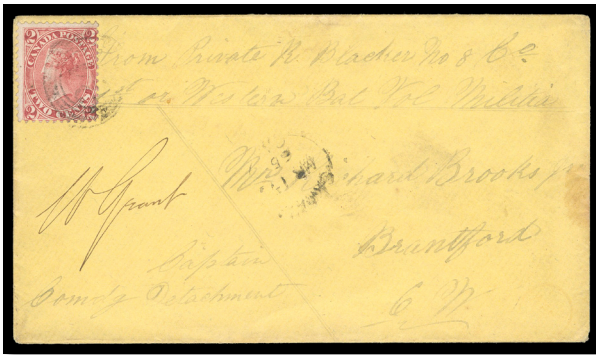 CANADA POSTAGE
2 2
2 2
TWO CENTS
From Private R. Blacher No 8 Co
1st or Western Bat Vol Militia
Mr Richard Brooks
W Grant
Brantford
Captain
Comdg Detachment
C. W.